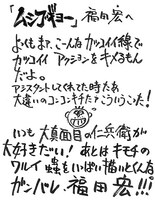 「ムシブギョー」福田宏へ
よくもまァ、こーんなカッコイイ線で
カッコイイ アクションを キメるもん
だよ。
アシスタントしてくれてた時たぁ
大違いのコンコンキチだ!こういうこた!
いつも大真面目の仁兵衛が
大好きだい! あとは キモチの
ワルイ 蟲を いっぱい描いとくんな
ガンバレ 福田宏!!!